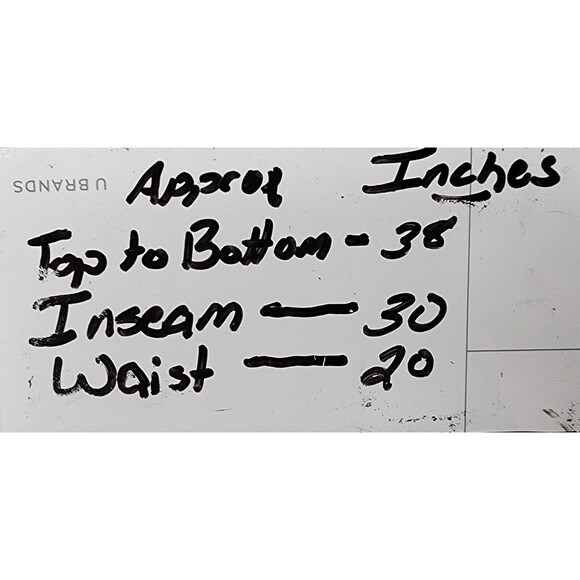 U BRANDS
Approx Inches
Top to Bottom - 38
Inseam — 30
Waist — 20